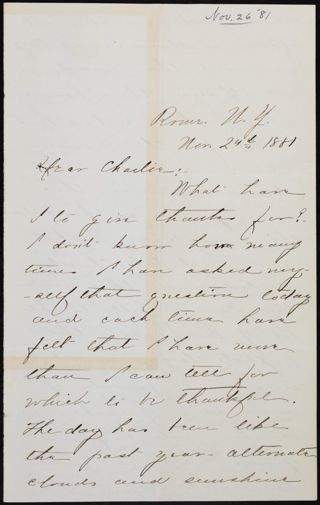 Nov. 26 '81
Rome. N. Y.
Nov 24th 1881
Dear Charlie:.
What have
I to give thanks for?
I don't know how many
times I have asked my-
-self that question today
and each time have
felt that I have more
than I can tell for
which to be thankful.
The day has been like
the past year - alternate
clouds and sunshine